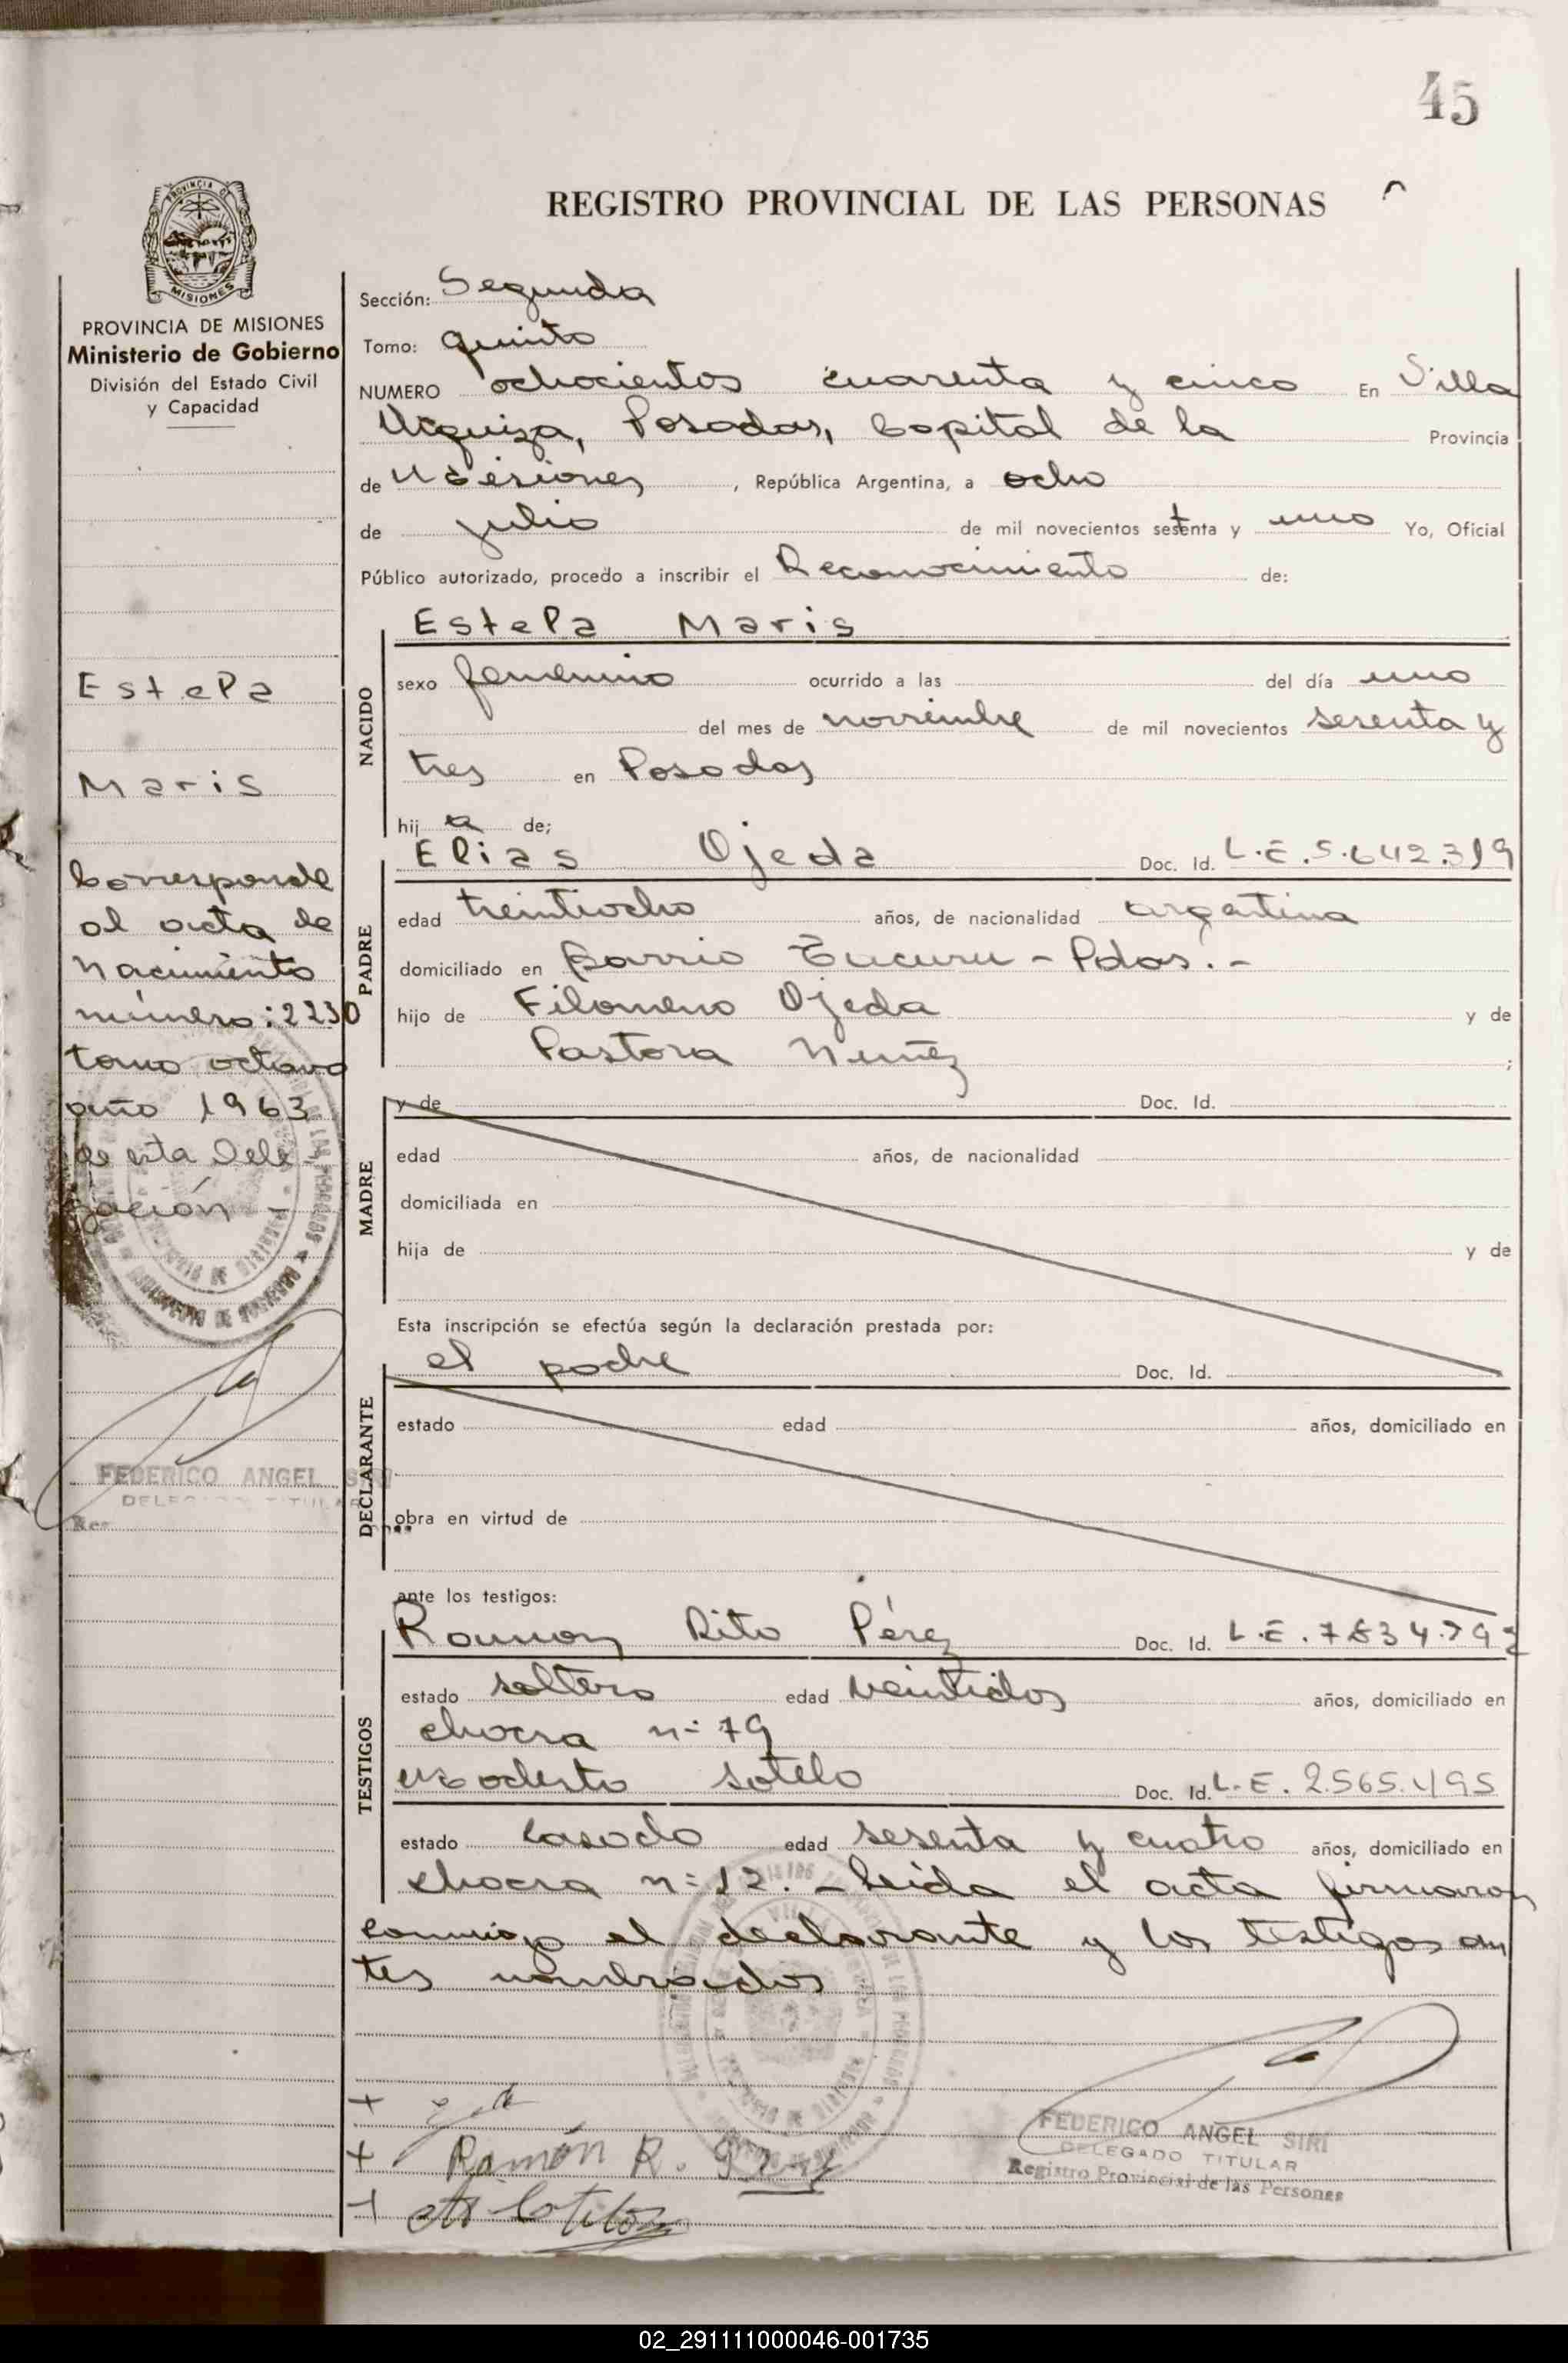 45
REGISTRO PROVINCIAL DE LAS PERSONAS
PROVINCIA DE MISIONES
Ministerio de Gobierno
División del Estado Civil
y Capacidad
Estela
Maris
Corresponde
al acta de
Nacimiento
número: 2230
tomo octavo
año 1963
de esta Dele-
gación -
FEDERICO ANGEL SIRI
DELEGADO TITULAR
Sección: Segunda
Tomo: quinto
NUMERO ochocientos cuarenta y cinco En Villa
Urquiza, Posadas, Capital de la Provincia
de Misiones, República Argentina, a ocho
de julio de mil novecientos setenta y uno Yo, Oficial
Público autorizado, procedo a inscribir el Reconocimiento de:
NACIDO
Estela Maris
sexo femenino ocurrido a las del día uno
del mes de noviembre de mil novecientos sesenta y
tres en Posadas
hij a de;
PADRE
Elias Ojeda Doc. Id. L.E. 5.642.319
edad treintiocho años, de nacionalidad argentina
domiciliado en Barrio Tucuru - Pdas. -
hijo de Filomeno Ojeda y de
Pastora Nuñez ;
MADRE
y de Doc. Id.
edad años, de nacionalidad
domiciliada en
hija de y de
Esta inscripción se efectúa según la declaración prestada por:
DECLARANTE
el padre Doc. Id.
estado edad años, domiciliado en
obra en virtud de
ante los testigos:
TESTIGOS
Ramon Rito Pérez Doc. Id. L.E.
estado soltero edad veintidos años, domiciliado en
chacra n= 79
Modesto Sotelo Doc. Id. L.E. 2.565.495
estado casado edad sesenta y cuatro años, domiciliado en
chacra n= 12. - Leida el acta firmaron
conmigo el declarante y los testigos an
tes nombrados
+
+ Ramón R. Pérez
+
FEDERICO ANGEL SIRI
DELEGADO TITULAR
Registro Provincial de las Personas
02_291111000046-001735